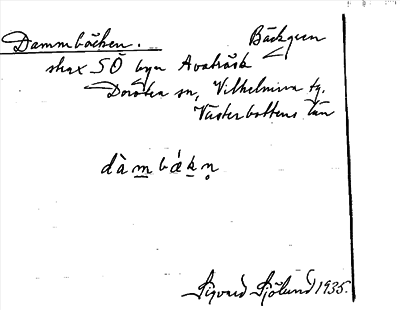 Dammbäcken. Bäcken
strax SÖ byn Avaträsk
Dorotea sn, Vilhelmina tg.
Västerbottens län
dàmbǽkn̥
Sigvard Sjölund 1935.